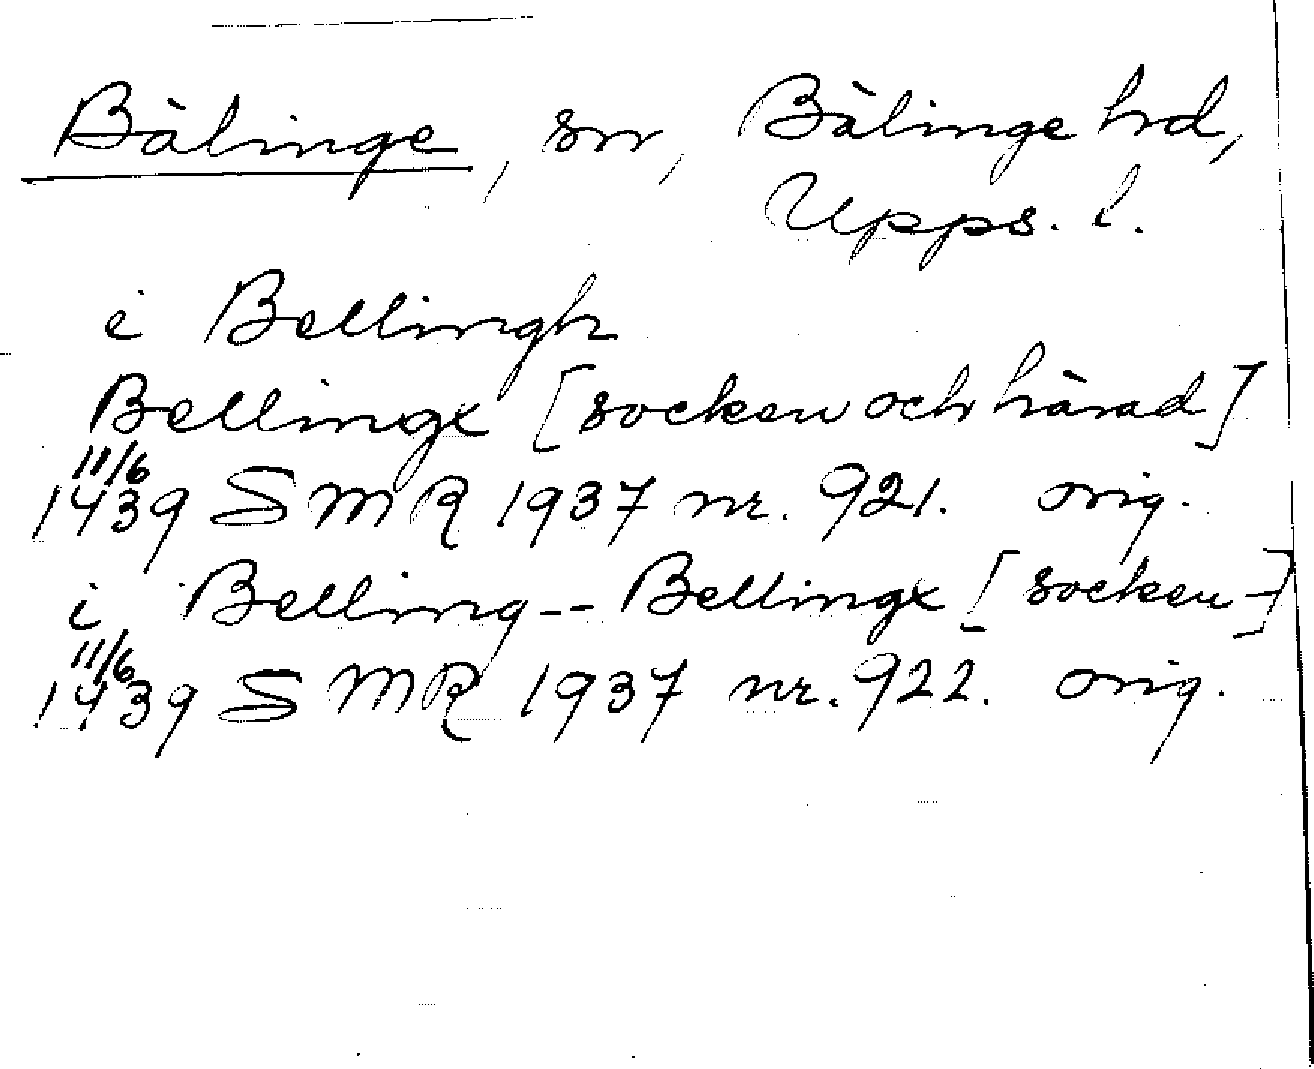 Bälinge, sn, Bälinge hd,
Upps. l.
i Bellingh
Bellinge [socken och härad]
11/6
1439 SMR 1937 nr. 921. orig.
i Belling -- Bellinge [socken]
11/6
1439 SMR 1937 nr. 922. orig.